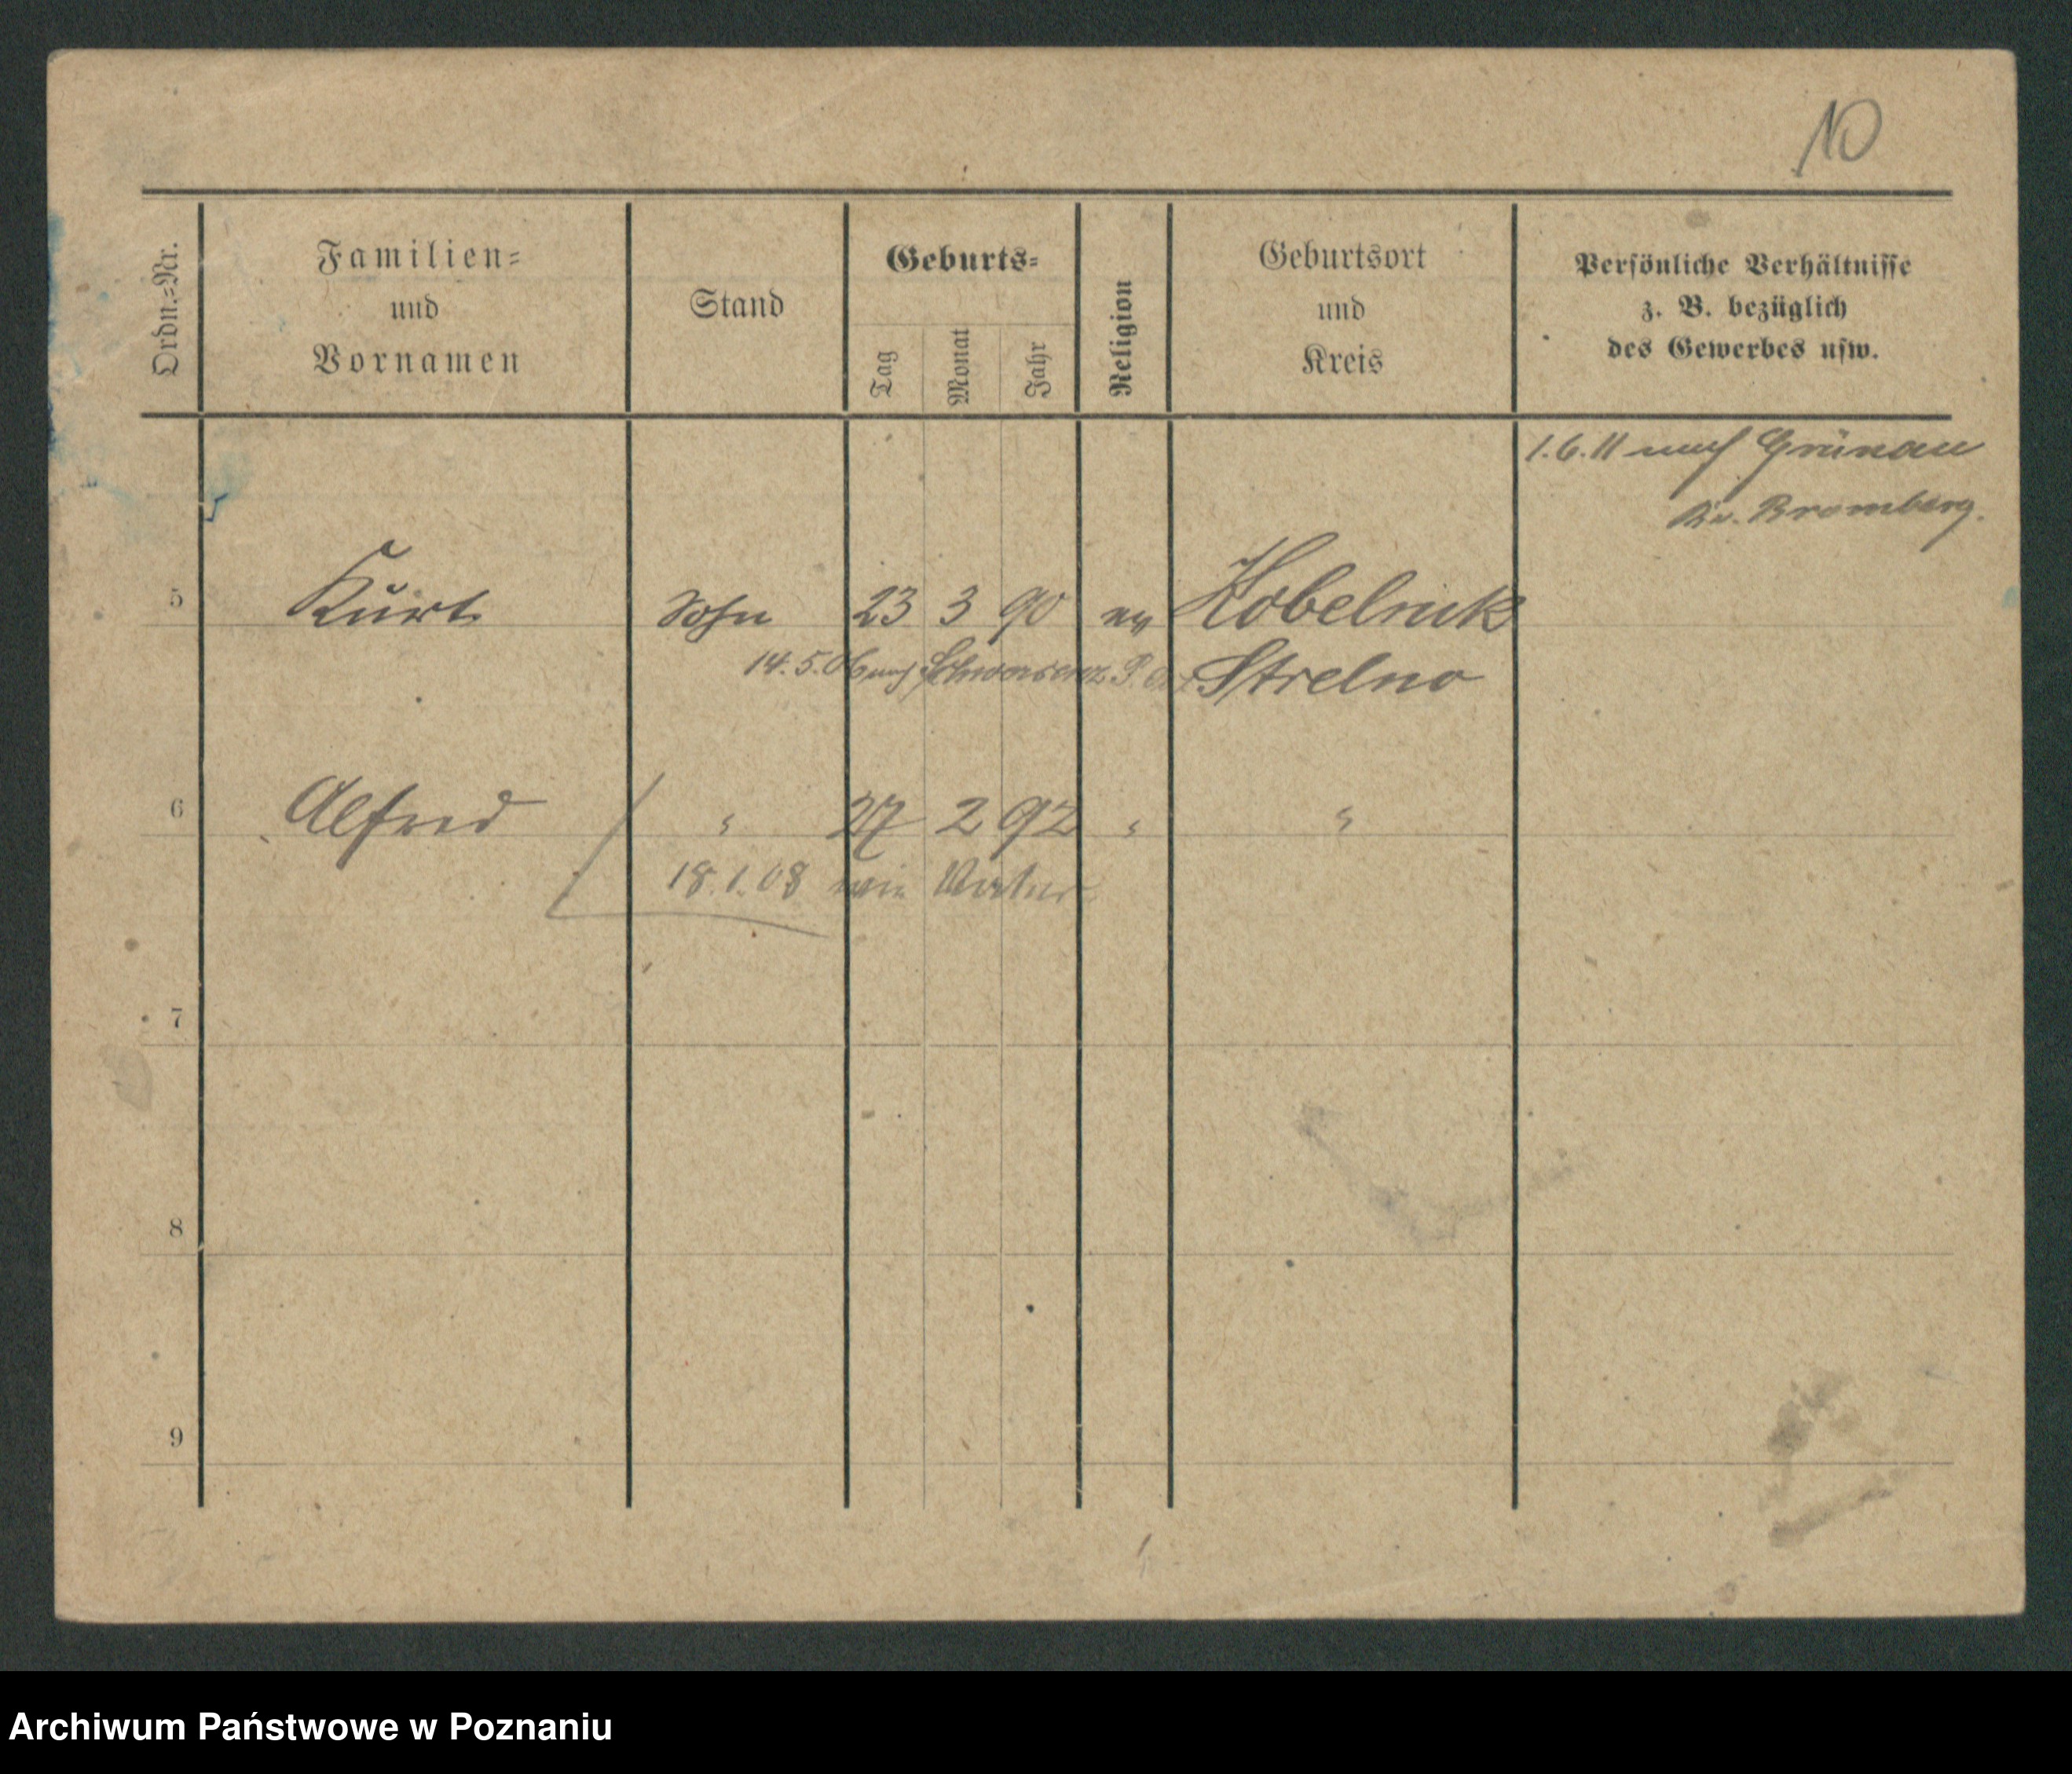 10
Ordn.=Nr.
Familien=
und
Vornamen
Stand
Geburts=
Tag
Monat
Jahr
Religion
Geburtsort
und
Kreis
Persönliche Verhältnisse
z. B. bezüglich
des Gewerbes usw.
1.6.11 nach Grünau
Kr. Bromberg.
5 Kurt Sohn 23 3 90 ev Kobelnik
14.5.06 nach Schwersenz P. Strelno
6 Alfred " 27 2 92 " "
18.1.08 wie Vater
7
8
9
Archiwum Państwowe w Poznaniu